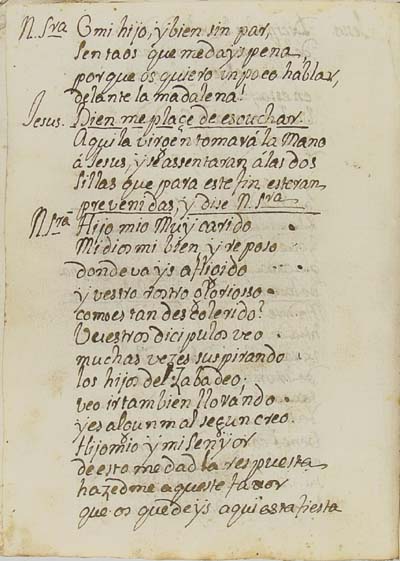 N. Sra O mi hijo, y bien sin par,
sentaós que me days pena,
porque ós quiero un poco hablar,
delante la madalena!
Jesus. Bien me plaçe de escuchar.
Aqui la virgen tomará la Mano
á Jesus, y se assentaran á las dos
sillas que para este fin estaran
prevenidas, y dise N. Sra
N. Sra Hijo mio Muy carido
Mi dios mi bien y reposo
donde vays afligido
y vestro rostro glorioso
como es tan descolerido?
Vuestros dicipulos veo
muchas vezes suspirando
los hijos del Zabadeo,
veo ir tambien llorando
y es algun mal segun creo.
Hijo mio y mi Senyor
de esto me dad la respuesta
hazedme aqueste favor
que os quedeys aqui esta fiesta